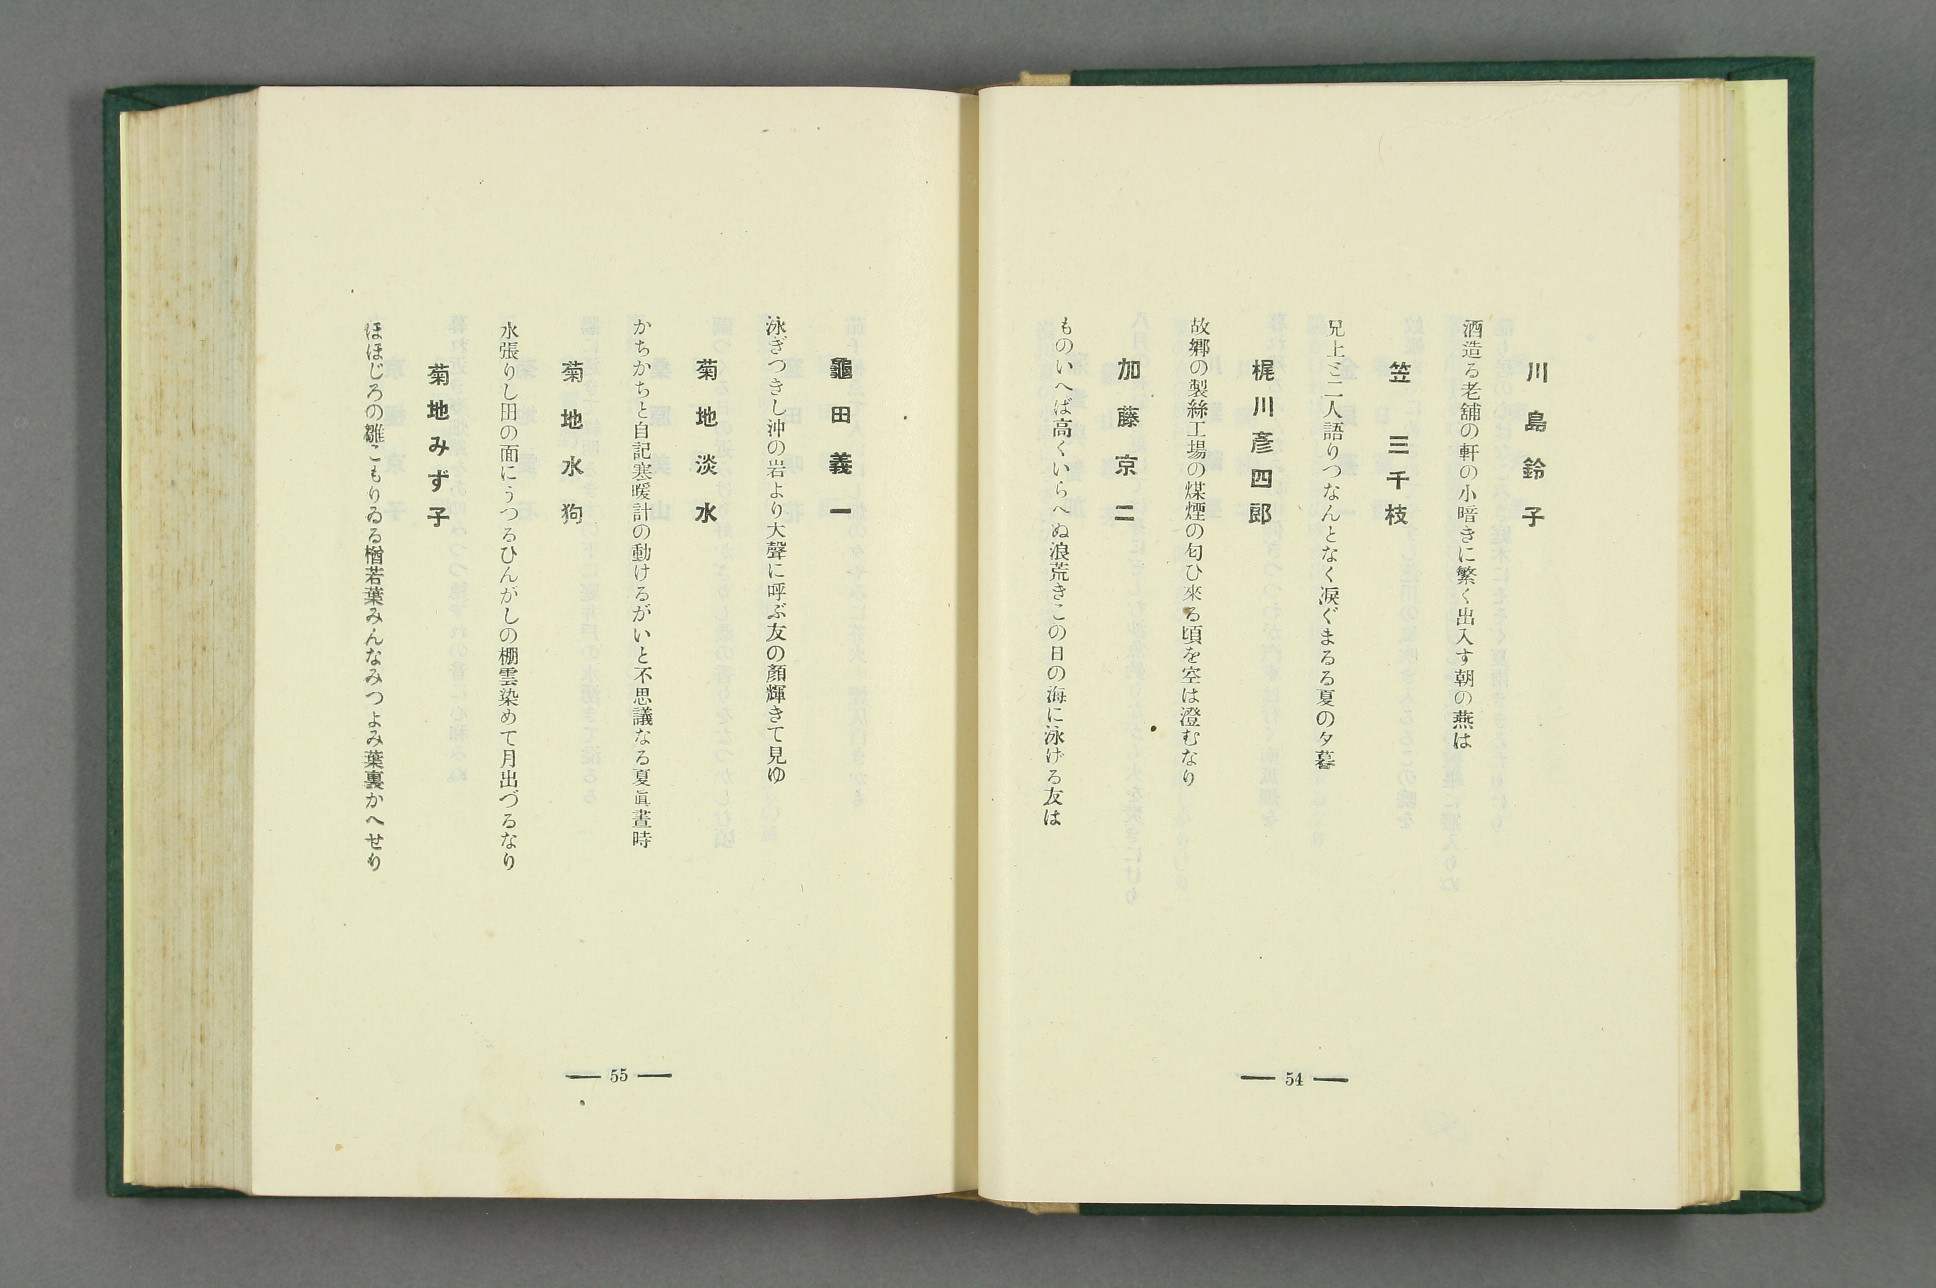 川島鈴子
酒造る老舗の軒の小暗きに繁く出入す朝の燕は
笠三千枝
兄上と二人語りつなんとなく涙ぐまるる夏の夕暮
梶川彥四郎
故鄕の製絲工場の煤煙の匂ひ來る頃を空は澄むなり
加藤京二
ものいへば高くいらへぬ浪荒きこの日の海に泳げる友は
54
龜田義一
泳ぎつきし沖の岩より大聲に呼ぶ友の顏輝きて見ゆ
菊地淡水
かちかちと自記寒暖計の動けるがいと不思議なる夏眞晝時
菊地水狗
水張りし田の面にうつるひんがしの棚雲染めて月出づるなり
菊地みず子
ほほじろの雛こもりゐる楢若葉みんなみつよみ葉裏かへせり
55